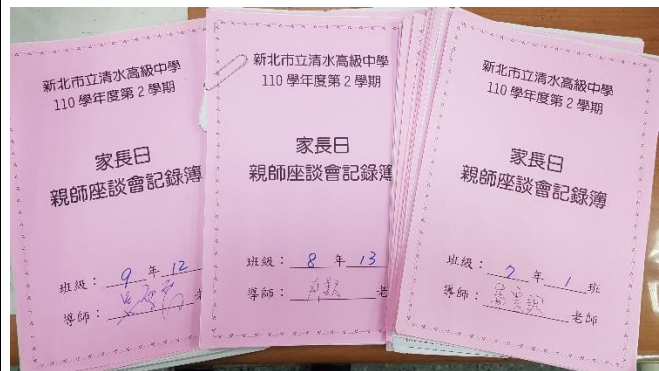 新北市立清水高級中學
110 學年度第 2 學期
家長日
親師座談會記錄簿
班級： 9 年 12
導師： 老
新北市立清水高級中學
110 學年度第 2 學期
家長日
親師座談會記錄簿
班級： 8 年 13
導師： 老
新北市立清水高級中學
110 學年度第 2 學期
家長日
親師座談會記錄簿
班級： 7 年 1 班
導師： 老師